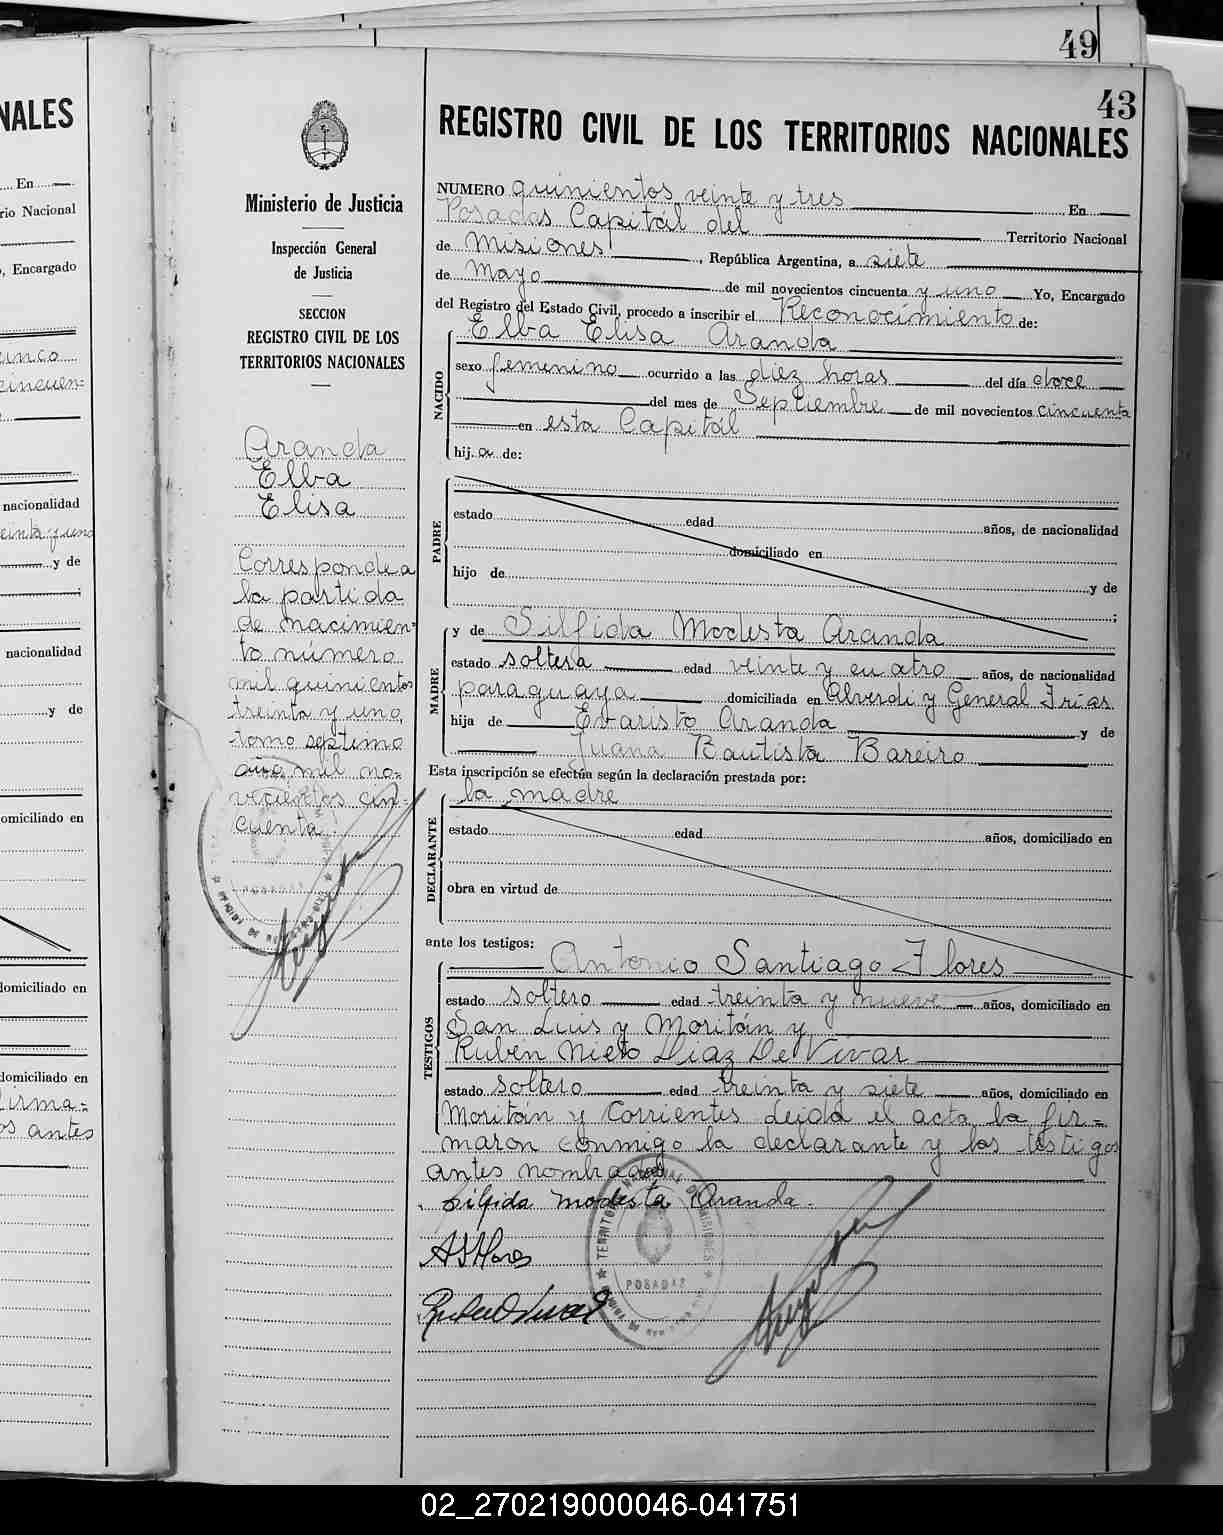 49
43
NALES
En
rio Nacional
, Encargado
cinco
cincuen=
nacionalidad
einta y uno
y de
nacionalidad
y de
omiciliado en
domiciliado en
domiciliado en
firma=
os antes
Ministerio de Justicia
Inspección General
de Justicia
SECCION
REGISTRO CIVIL DE LOS
TERRITORIOS NACIONALES
Aranda
Elba
Elisa
Corresponde a
la partida
de nacimien=
to número
mil quinientos
treinta y uno,
tomo septimo
año mil no=
vecientos cin=
cuenta
POSADAS
REGISTRO CIVIL DE LOS TERRITORIOS NACIONALES
NUMERO quinientos veinte y tres En
Posadas Capitál del Territorio Nacional
de Misiones, República Argentina, a siete
de Mayo de mil novecientos cincuenta y uno Yo, Encargado
del Registro del Estado Civil, procedo a inscribir el Reconocimiento de:
Elba Elisa Aranda
NACIDO
sexo femenino ocurrido a las diez horas del día doce
del mes de Septiembre de mil novecientos cincuenta
en esta Capitál
hij a de:
PADRE
estado edad años, de nacionalidad
domiciliado en
hijo de y de
;
MADRE
y de Silfida Modesta Aranda
estado soltera edad veinte y cuatro años, de nacionalidad
paraguaya domiciliada en Alverdi y General Frías
hija de Evaristo Aranda y de
Juana Bautista Bareiro
Esta inscripción se efectúa según la declaración prestada por:
la madre
DECLARANTE
estado edad años, domiciliado en
obra en virtud de
ante los testigos:
TESTIGOS
Antonio Santiago Flores
estado soltero edad treinta y nueve años, domiciliado en
San Luis y Moritán y
Rubén Nieto Diaz De Vivar
estado soltero edad treinta y siete años, domiciliado en
Moritán y Corrientes Leida el acta la fir=
maron conmigo la declarante y los testigos
antes nombrados
Silfida Modesta Aranda.
ASFlores
POSADAS
02_270219000046-041751